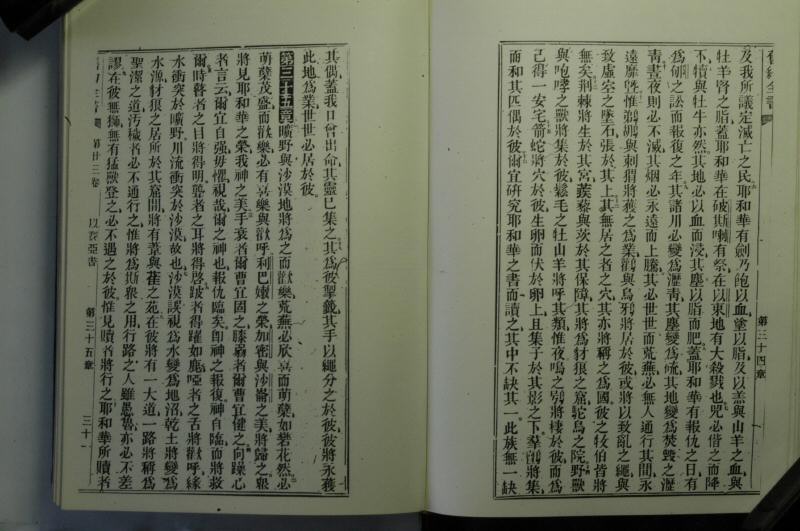 舊約全書
第三十四章
及我所議定滅亡之民耶和華有劍乃飽以血塗以脂及以羔與山羊之血與
牡羊腎之脂蓋耶和華在破斯喇有祭在以東地有大殺戮也兕必偕之而降
下犢與牡牛亦然其地必以血而浸其塵以脂而肥蓋耶和華有報仇之日有
為郇之訟而報復之年其諸川必變為瀝青其塵變為硫其地變為焚燬之瀝
靑晝夜則必不滅其烟必永遠而上騰其必世世而荒蕪必無人通行其間永
遠靡曁惟鵜鶘與刺猬將獲之為業鸛與烏鴉將居於彼或將以致亂之繩與
致虛空之墜石張於其上其無居之者之穴其亦將稱之為國彼之牧伯皆將
無矣荊棘將生於其宮蒺藜與茨於其保障其將為豺狼之窟鴕鳥之院野獸
與咆哮之獸將集於彼鬆毛之牡山羊將呼其類惟夜鳴之鴞將棲於彼而為
己得一安宅箭蛇將穴於彼生卵而伏於卵上且集子於其影之下羣鷂將集
而和其匹偶於彼爾宜研究耶和華之書而讀之其中不缺其一此族無一缺
其偶蓋我口曾出命其靈已集之其為彼掣籤其手以繩分之於彼彼將永獲
此地為業世世必居於彼
第三十五章曠野與沙漠地將為之而歡樂荒蕪必欣喜而萌蘖如礬花然必
萌蘖茂盛而歡樂必有喜樂與歡呼利巴嫩之榮加密與沙崙之美將歸之眾
將見耶和華之榮我神之美手衰者爾曹宜固之膝弱者爾曹宜健之向躁心
者言云爾宜自强毋懼視哉爾之神也報仇臨矣卽神之報復神自臨而將救
爾時瞽者之目將得明聾者之耳將得啓跛者將得躍如鹿啞者之舌將歡呼緣
水衝突於曠野川流衝突於沙漠故也沙漠誤視為水變為地沼乾土將變為
水源豺狼之居所於其窟間將有葦與萑之苑在彼將有一大道一路將稱為
聖潔之道汚穢者必不通行之惟將為斯眾之用行路之人雖愚魯亦必不差
謬在彼無獅無有猛獸登之必不遇之於彼惟見贖者將行之耶和華所贖者
第廿三卷
以賽亞書
第三十五章
三十